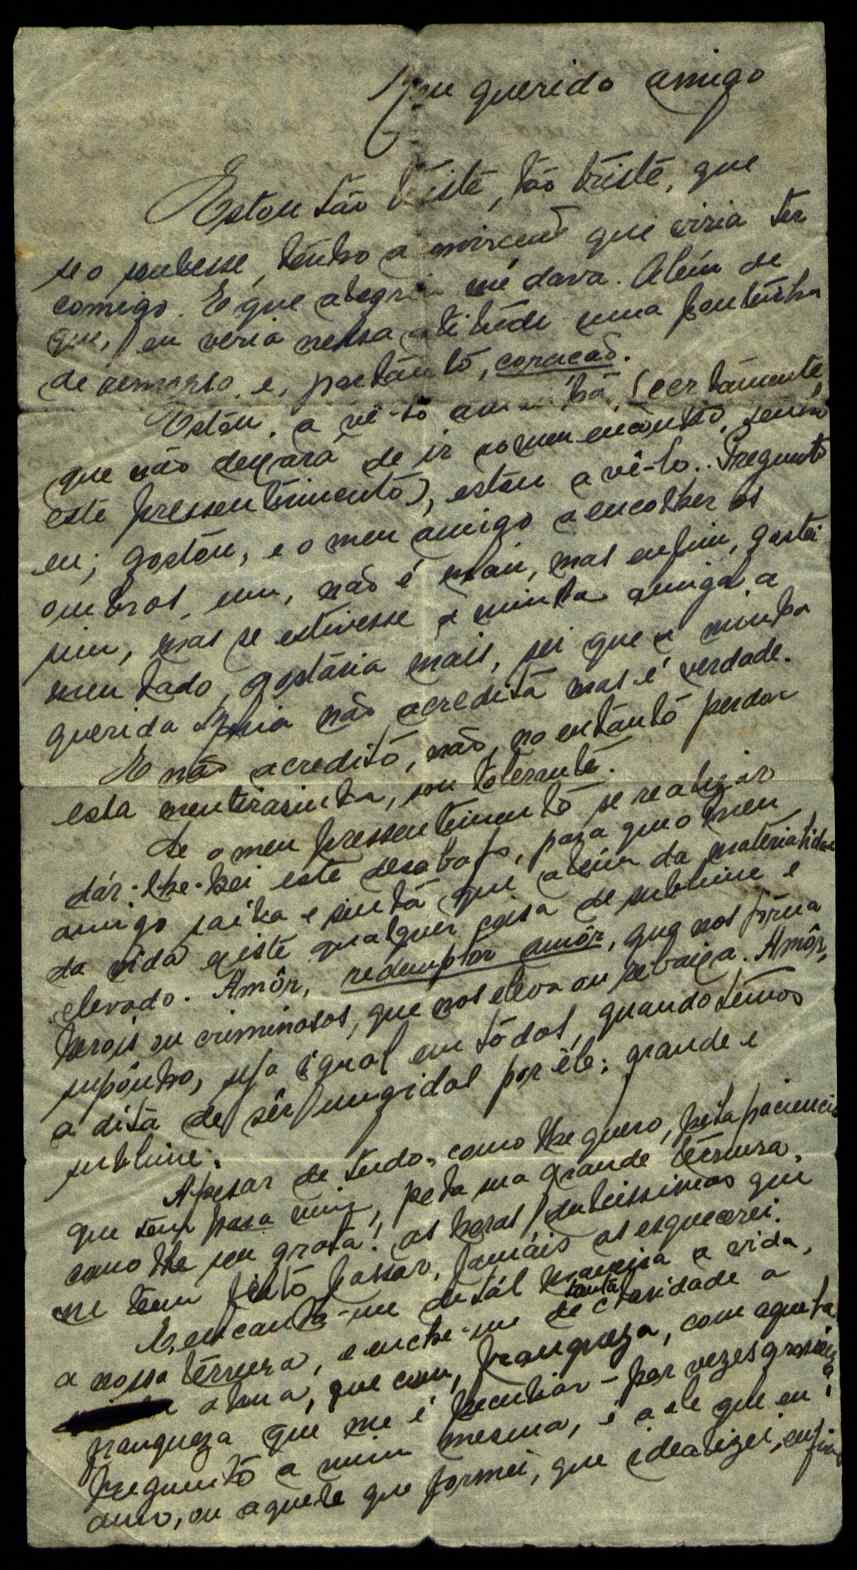 Meu querido amigo
Estou tão triste, tão triste, que
se o soubesse, tenho a impressão que viria ter
comigo. E que alegria me dava. Além de
que, eu veria nessa atitude uma pontinha
de remorso, e, portanto, coração.
Estou, a vê-lo amanhã, (certamente,
que não deixará de ir ao meu encontro, tenho
este pressentimento), estou a vê-lo. Pregunto
eu; gostou, e o meu amigo a encolher os
ombros, não é mau, mas enfim, gostei
sim, mas se estivesse a minha amiga a
meu lado, gostaria mais, sei que a minha
querida não acredita mas é verdade.
E não acredito, não, no entanto perdoo
esta mentirasinha, sou tolerante.
Se o meu pressentimento se realizar
dár-lhe-hei este desabafo, para que o meu
amigo saiba e sinta que além da materialidade
da vida existe qualquer coisa de sublime e
elevado. Amôr, redemptôr amôr, que nos torna
herois ou criminosos, que nos eleva ou rebaixa. Amôr,
supônho, seja igual em tôdos, quando têmos
a dita de sêr pungidos por êle; grande e
sublime.
Apesar de tudo, como lhe quero, pela paciencia
que tem para mim, pela sua grande ternura,
como lhe sou grata! as horas dulcissimas que
me tem feito passar, jamáis as esquecerei.
E, encanta-me de tál maneira a vida,
a nossa ternura, e enche-me de tanta claridade a
alma, que com, franqueza, com aquela
franqueza que me é peculiar - por vezes grosseira
pregunto a mim mesma, é a ele que eu
amo, ou aquele que formei, que idealizei, enfim